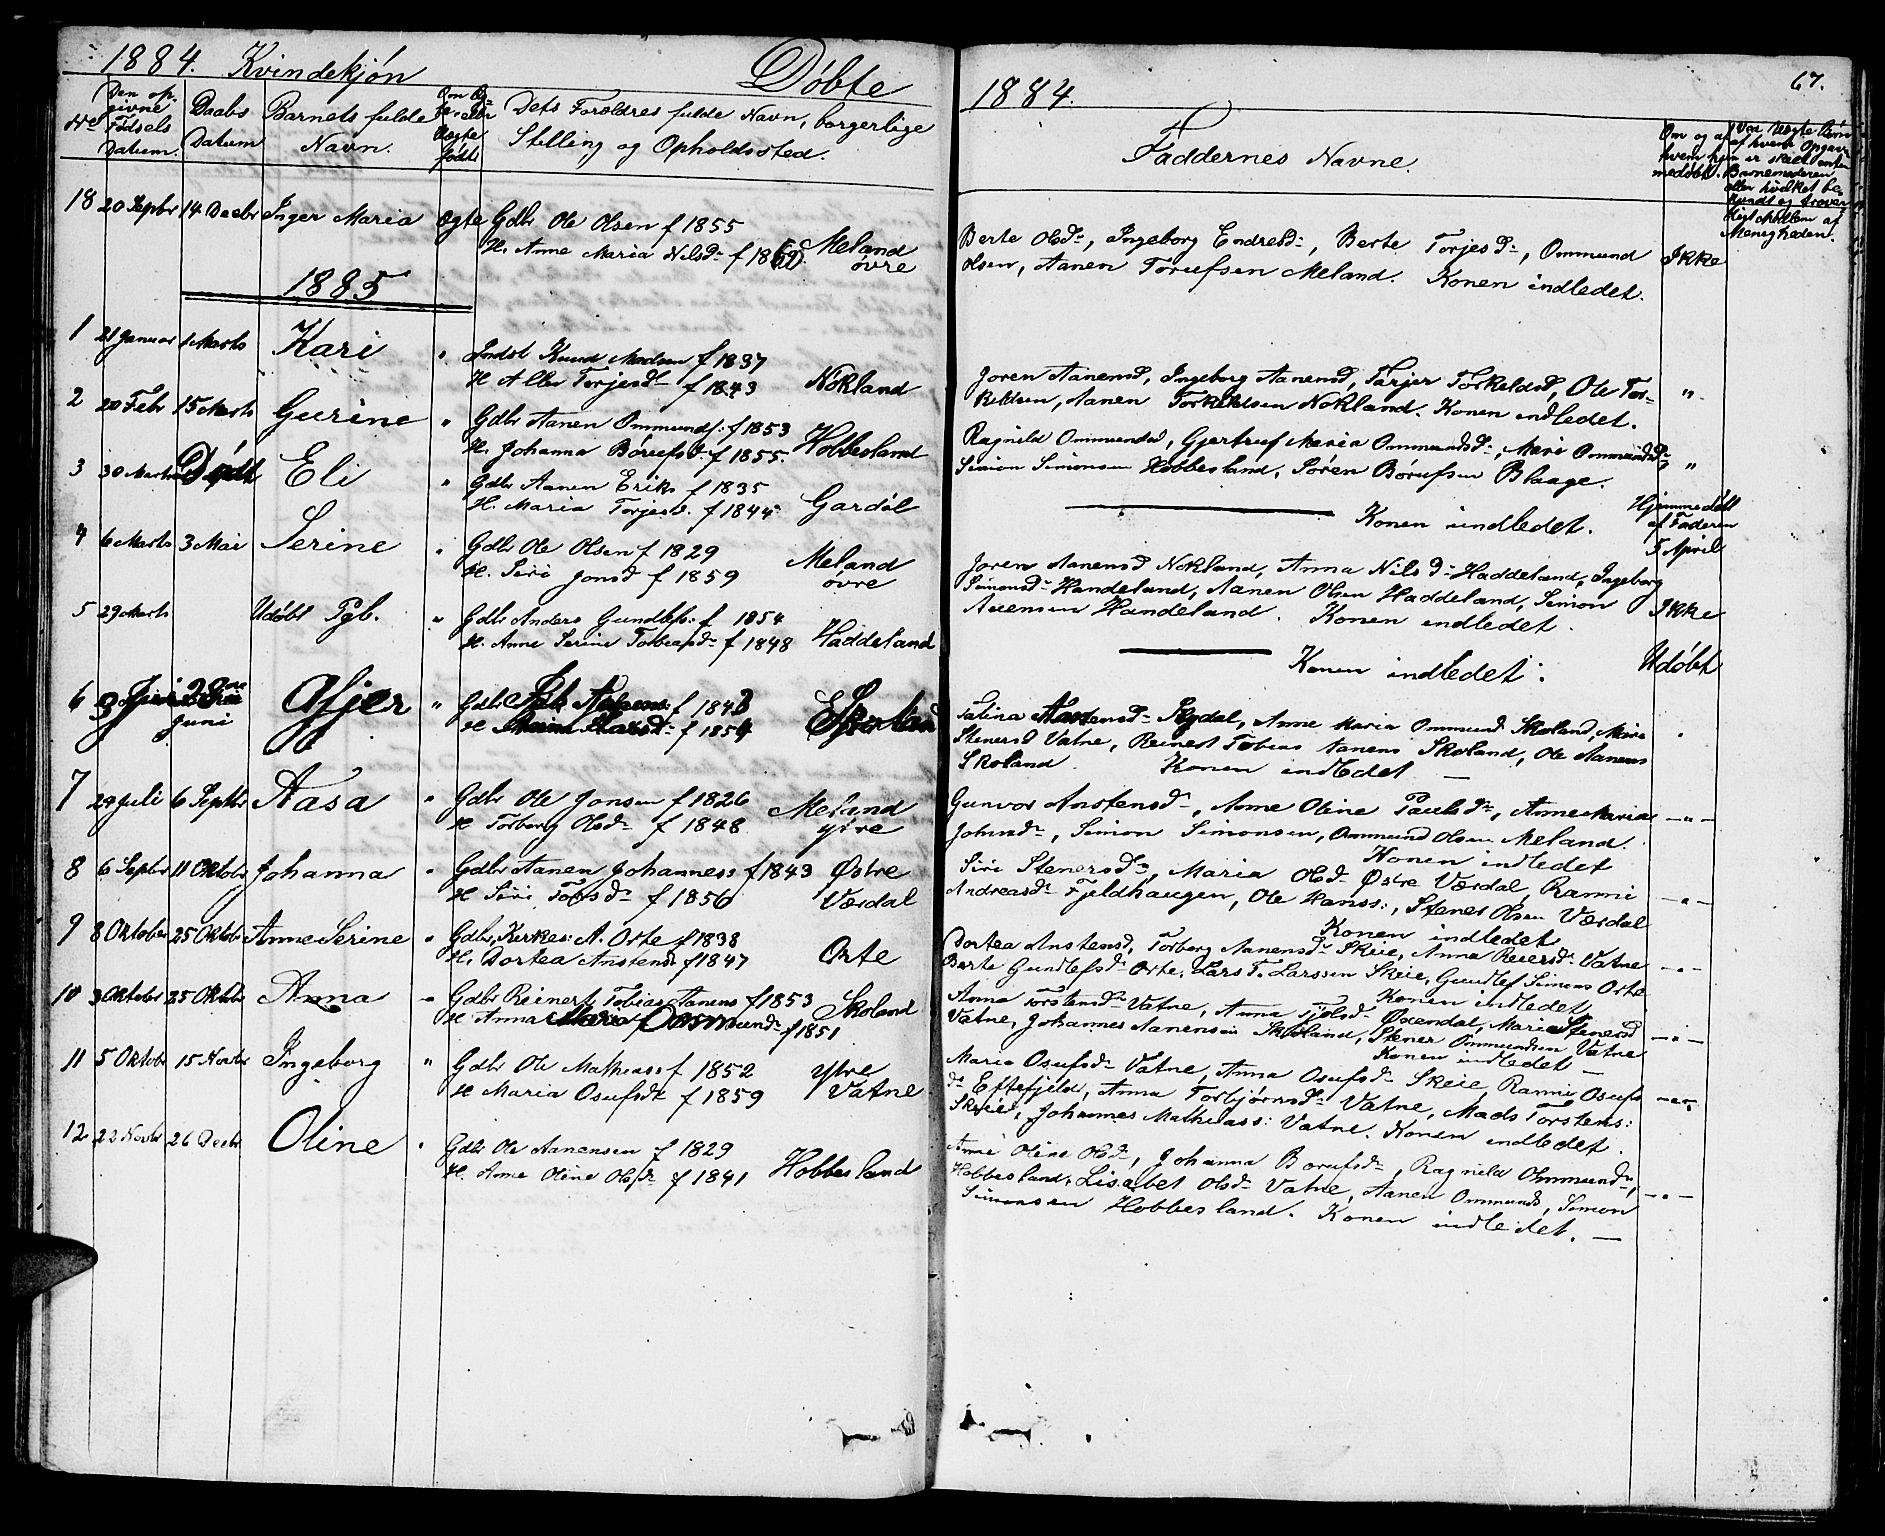 1884. Kvindekjön Döbte
No
Den op-
givne
Födsels
Datum.
Daabs
Datum
Barnets fulde
Navn.
Ægte
födt
Dets Forældres fulde Navn, borgerlige
Stilling og Opholdssted.
18 20 Septbr 14 Decbr Inger Maria ægte Gdbr Ole Olsen f 1855
H. Anne Maria Nilsdr f 1860 Meland
övre
1885
1 21 Januar 1 Marts Kari " Indst Knud Madsen f 1837
H Torjesdr f 1843 Nokland
2 20 Febr 15 Marts Gurine " Gdbr Aanen Ommunds: f 1853
H. Johanna Börufsdr f 1855. Hobbesland
3 30 Marts Död Eli " Gdbr Aanen Eriks f 1835
H. Maria Torjesd. f 1844 Gardöl
4 6 Marts 3 Mai Serine " Gdbr Ole Olsen f 1829
H. Siri Jonsd f 1859 Meland
övre
5 29 Marts Udöbt Pgb. " Gdbr Anders Gundlefs: f 1854
H. Anne Serine Tobiasdr f 1848 Haddeland
6 3 Juni Gjer " Gdbr f 1843
Juni
H f 1854
7 29 Juli 6 Septbr Aasa " Gdbr Ole Jonsen f 1826 Meland
H Torborg Olsdr f 1848 ytre
8 6 Septbr 11 Oktobr Johanna " Gdbr Aanen Johanness f 1843 Østre
H Siri Torsdr f 1856 Værdal
9 8 Oktober 25 Oktobr Anne Serine " Gdbr, Kirkes: A. Orte f 1838
H. Dortea Anstensdr f 1847 Orte
10 3 Oktober 25 Oktobr Anna " Gdbr Reinert Tobias Aanens f 1853 Skoland
H Anna Maria Ommundsdr f 1851
11 5 Oktobr 15 Novbr Ingeborg " Gdbr Ole Mathiass f 1852 Ytre
H Maria Osufsdr f 1859 Vatne
12 22 Novbr 26 Decbr Oline " Gdbr Ole Aanensen f 1829
H. Anne Oline Olsdr f 1841 Hobbesland
1884.
67.
Faddernes Navne.
Om og af
hvem hjem
medöbt.
Ved uægte Börn
af hvem Opgav
en er skeet enten
Barnemoderen
eller hvilket be-
kendt og trover
digt Medlem af
Menigheden.
Berte Olsdr, Ingeborg Endresdr, Berte Torjesdr, Ommund Ikke
Olsen, Aanen Torufsen Meland. Konen indledet.
Joren Aanensd, Ingeborg Aanensd, Tarjer Torkeldsd, Ole Tor- "
keldsen, Aanen Torkildsen Nokland. Konen indledet.
Ragnild Ommundsd, Gjertruf Maria Ommundsdr, Mari Ommundsdr "
Simon Simonsen Hobbesland, Sören Börufsen Blaage.
Konen indledet.
Hjemmedöbt
af Faderen
5 April
Joren Aanensd Nokland, Anna Nilsdr Haddeland, Ingeborg
Simonsdr Handeland, Aanen Olsen Haddeland, Simon Ikke
Auensen Handeland. Konen indledet.
Konen indledet. Udöbt
Anne Maria Ommund Skoland, Mari
Stenersd Vatne, Reinert Tobias Aanens Skoland, Ole Aanens
Skoland. Konen indledet —
Gunvor Anstensdr, Anne Oline Paulsdr, Anne Maria — " —
Johnsdr, Simon Simonsen, Ommund Olsen Meland.
Konen indledet
Siri Stenersdr, Maria Olsdr Østre Værdal, Ranni
Andreasdr Fjeldhaugen, Ole Hanss:, Stener Olsen Værdal — " —
Konen indledet
Dortea Anstensd, Torborg Aanensdr Skeie, Anna Reiersdr Vatne — " —
Berte Gundlefsdr Orte, Lars T. Larssen Skeie, Gundlef Simons Orte
Konen indledet
Anna Torstensdr Vatne, Anna Øxendal, Maria Stenersd — " —
Vatne, Johannes Aanensen Skoland, Stener Ommundsen Vatne
Konen indledet —
Maria Osufsdr Vatne, Anna Osufsdr Skeie, Ranni Osufs — " —
dr Eftefjeld, Anna Torbjörnsdr Vatne, Mads Torstens:
Skeie, Johannes Mathiass: Vatne. Konen indledet.
Anne Oline Olsdr, Johanna Borufsdr, Ragnild Ommundsdr,
Hobbesland, Lisabet Olsdr Vatne, Aanen Ommunds, Simon — " —
Simonsen Hobbesland. Konen indledet. —